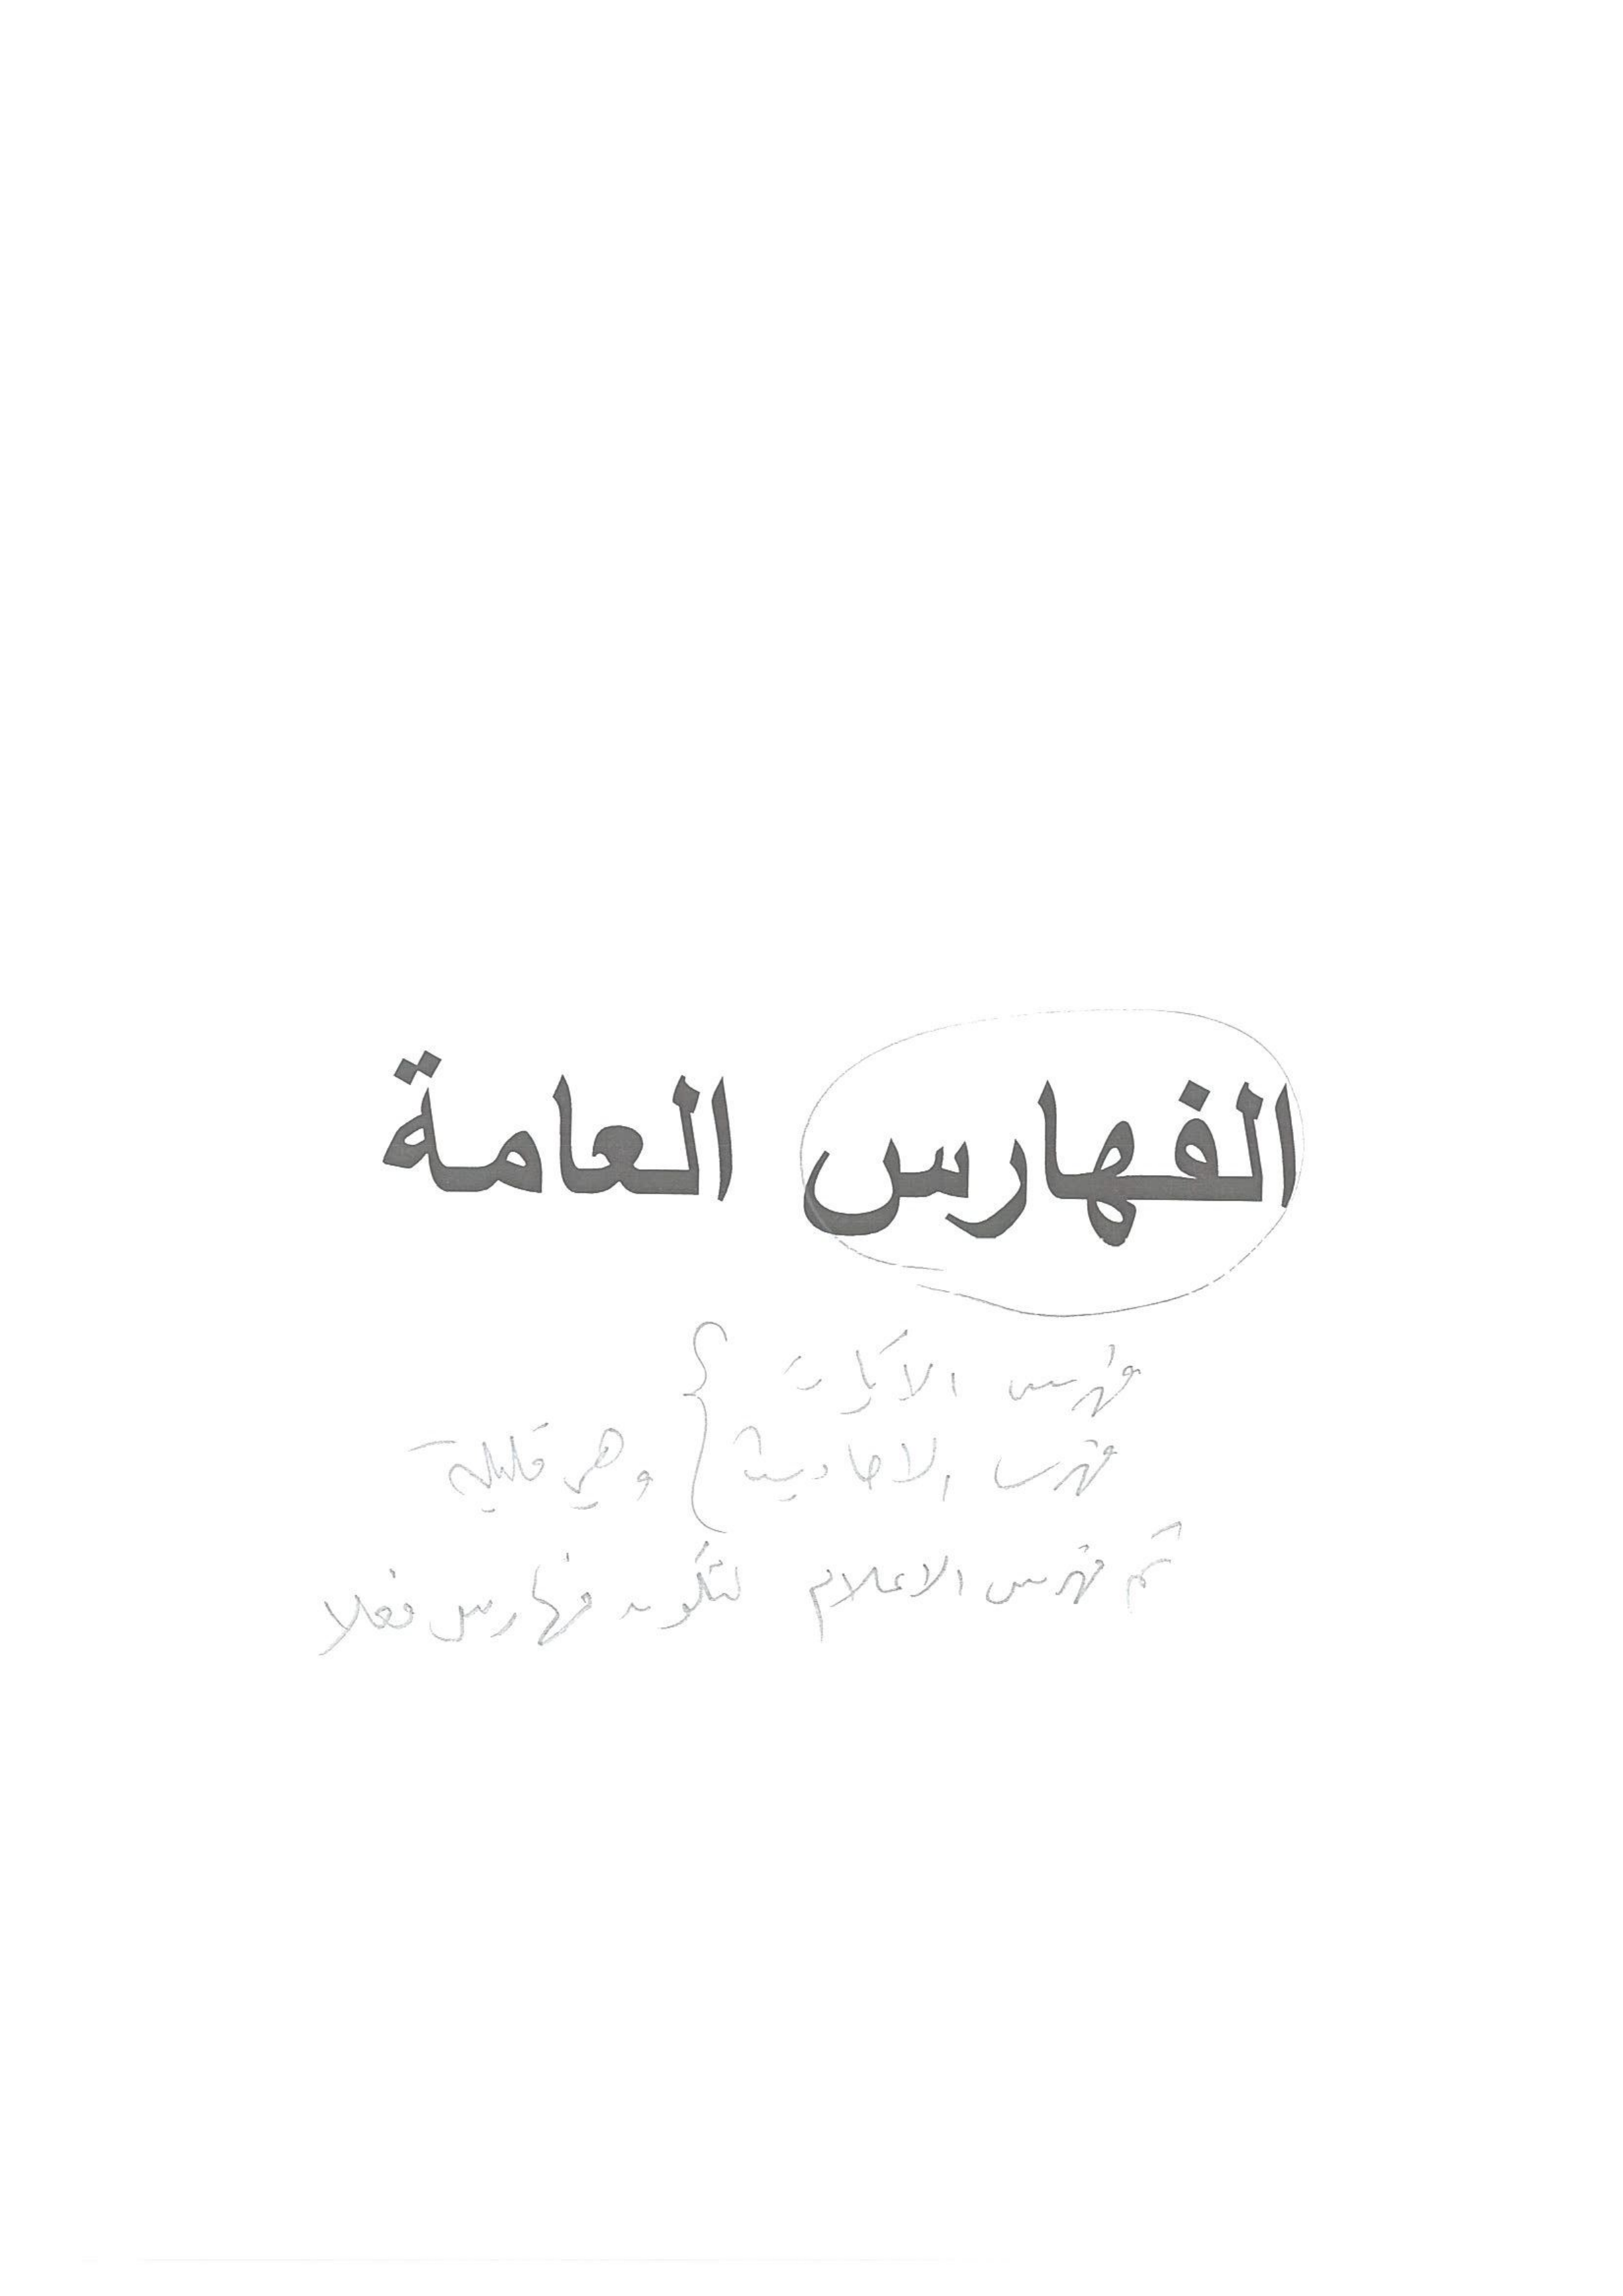 الفهارس العامة
فهرس الآيات
فهرس الاحاديث } وهي قليلة
ثم فهرس الاعلام لتكون فهارس فعلا